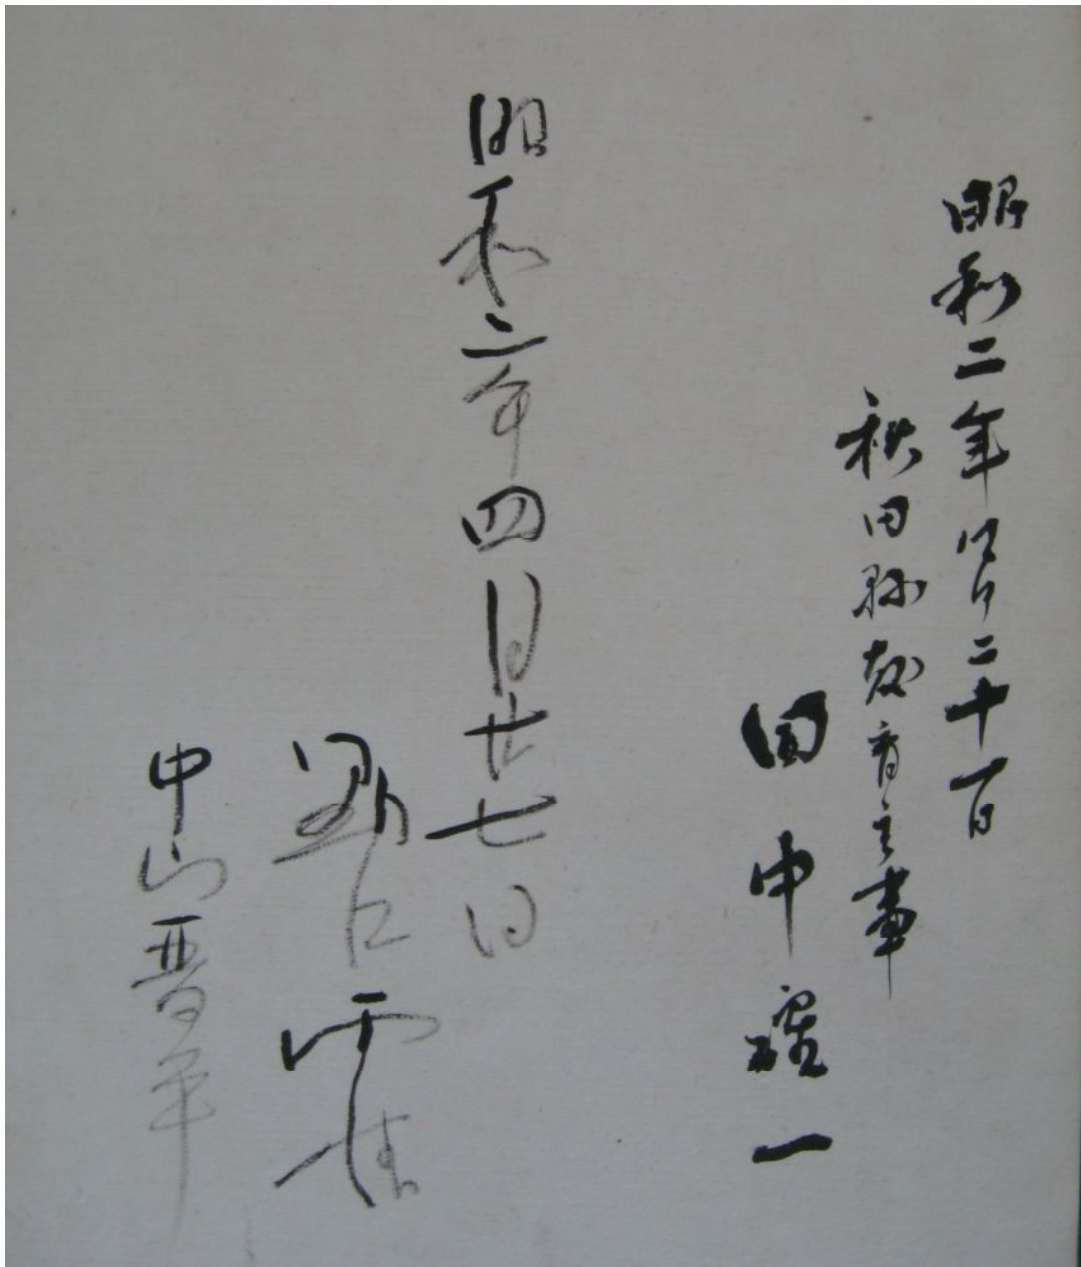 昭和二年四月二十一日
秋田縣教育主事
田中確一
昭和二年四月廿七日
野口雨情
中山晋平